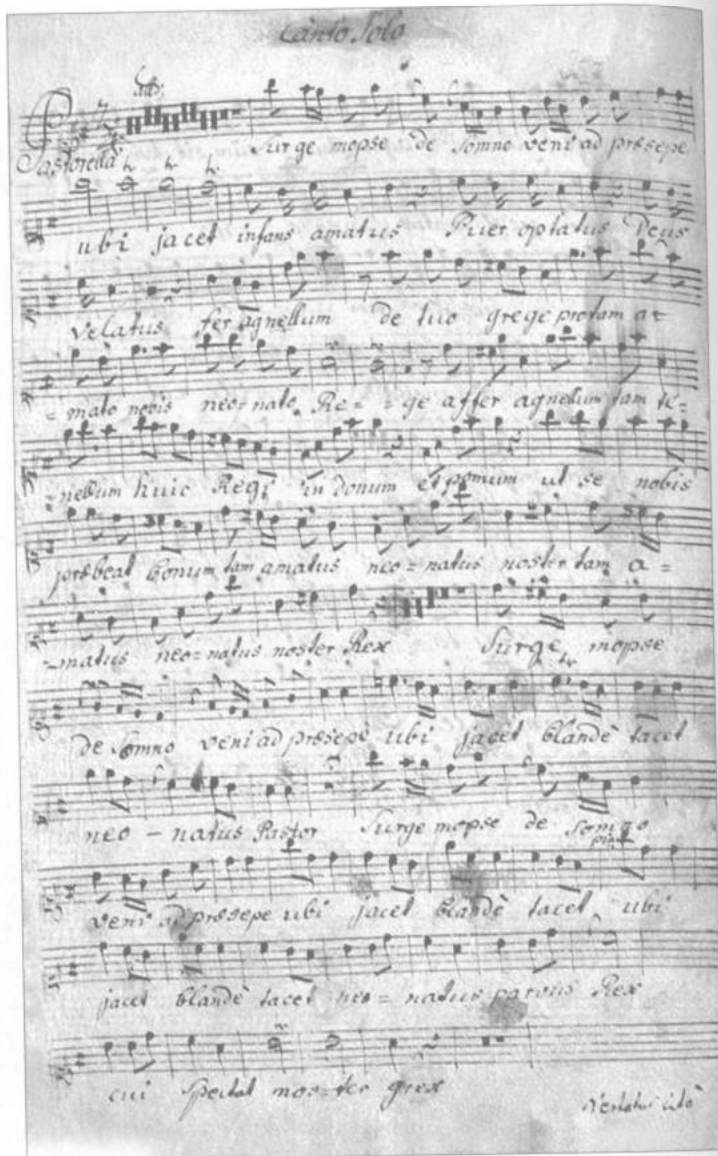 Canto Solo
Pastorella
Surge mopse de Somno veni ad præsepe
ubi jacet infans amatus Puer optatus Deus
velatus fer agnellum de tuo grege pro tam a=
=mato nobis neo=nato Re=ge affer agnellum tam te=
=nellum huic Regi in donum et pomum ut se nobis
præbeat bonum tam amatus neo=natus noster tam a=
=matus neo=natus noster Rex Surge mopse
de Somno veni ad præsepe ubi jacet blandè tacet
neo-natus Pastor Surge mopse de Somno
veni ad præsepe ubi jacet blandè tacet ubi
jacet blandè tacet neo=natus parvus Rex
cui spectat nos=ter grex